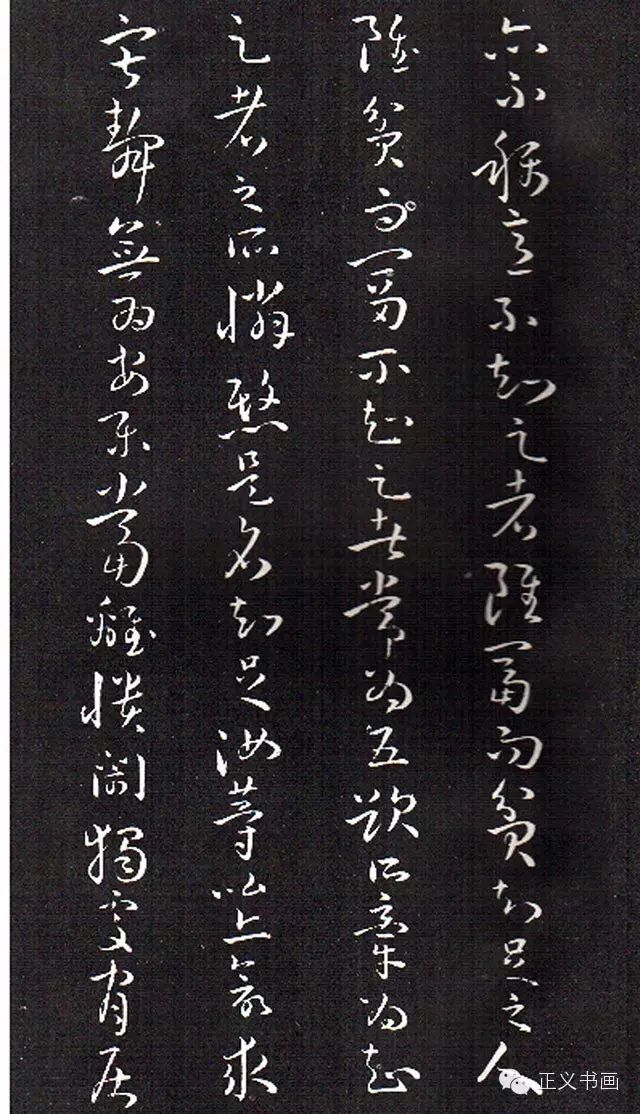 亦不稱意不知足者雖富而貧知足之人
雖貧而富不知足者常為五欲所牽為知
足者之所憐愍是名知足汝等比丘欲求
寂靜無為安樂當離憒鬧獨處閑居
正义书画